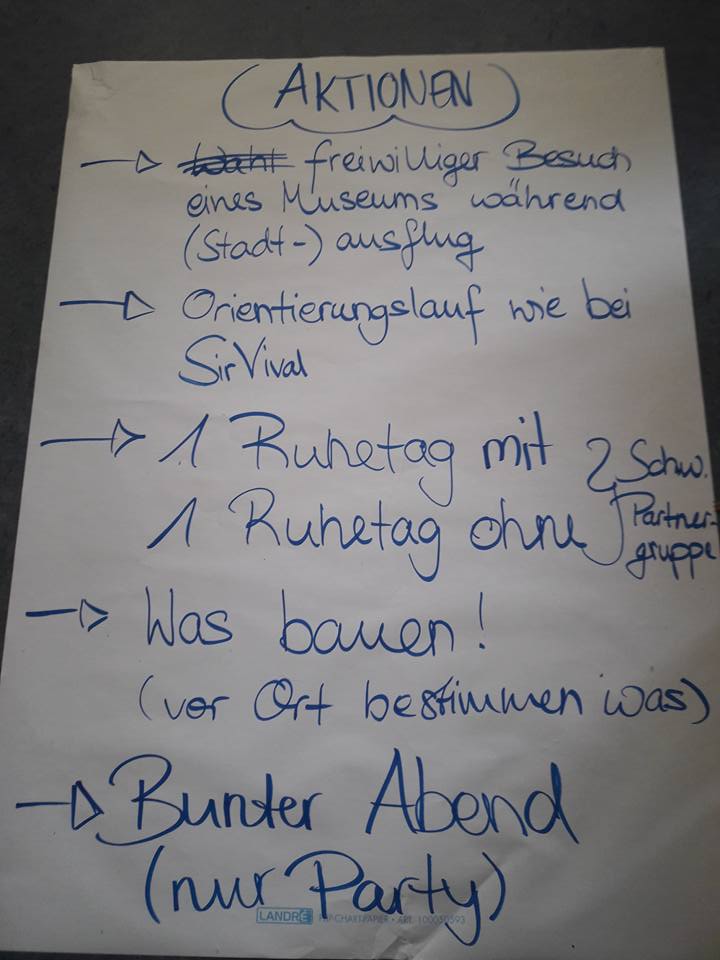 (AKTIONEN)
→ freiwilliger Besuch
eines Museums während
(Stadt-) ausflug
→ Orientierungslauf wie bei
SirVival
→ 1 Ruhetag mit } Schw.
1 Ruhetag ohne } Partner-
gruppe
→ Was bauen!
(vor Ort bestimmen was)
→ Bunter Abend
(nur Party)
LANDRÉ FLIPCHARTPAPIER • ART. 100050593